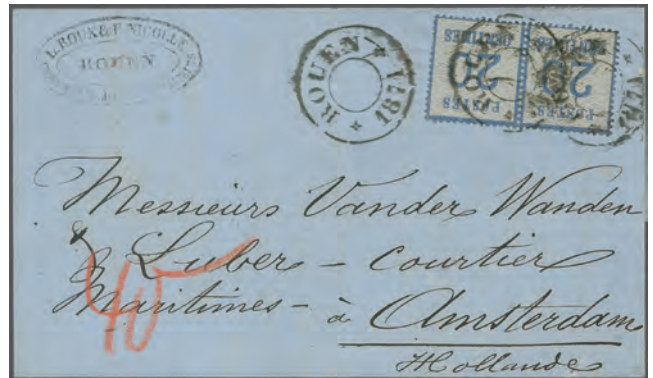 L. ROUX & F. NICOLLE
ROUEN
ROUEN
1871
POSTES
20
CENTIMES
POSTES
20
CENTIMES
Messieurs Vander Wanden
& Lubers – courtier
Maritimes – à Amsterdam
Hollande
40